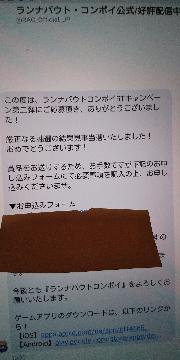 ランナバウト・コンボイ公式/好評配信中
@RAC_Official_JP
この度は、ランナバウトコンボイRTキャンペーン第二弾にご応募頂き、ありがとうございました！
厳正なる抽選の結果見事当選いたしました！
おめでとうございます！
賞品をお送りするため、お手数ですが下記のお申し込みフォームにて必要事項を記入の上、お申し込みくださいませ。
▼お申込みフォーム
今後とも『ランナバウトコンボイ』をよろしくお願いいたします。
ゲームアプリのダウンロードは、以下のリンクから！
【iOS】
【Android】